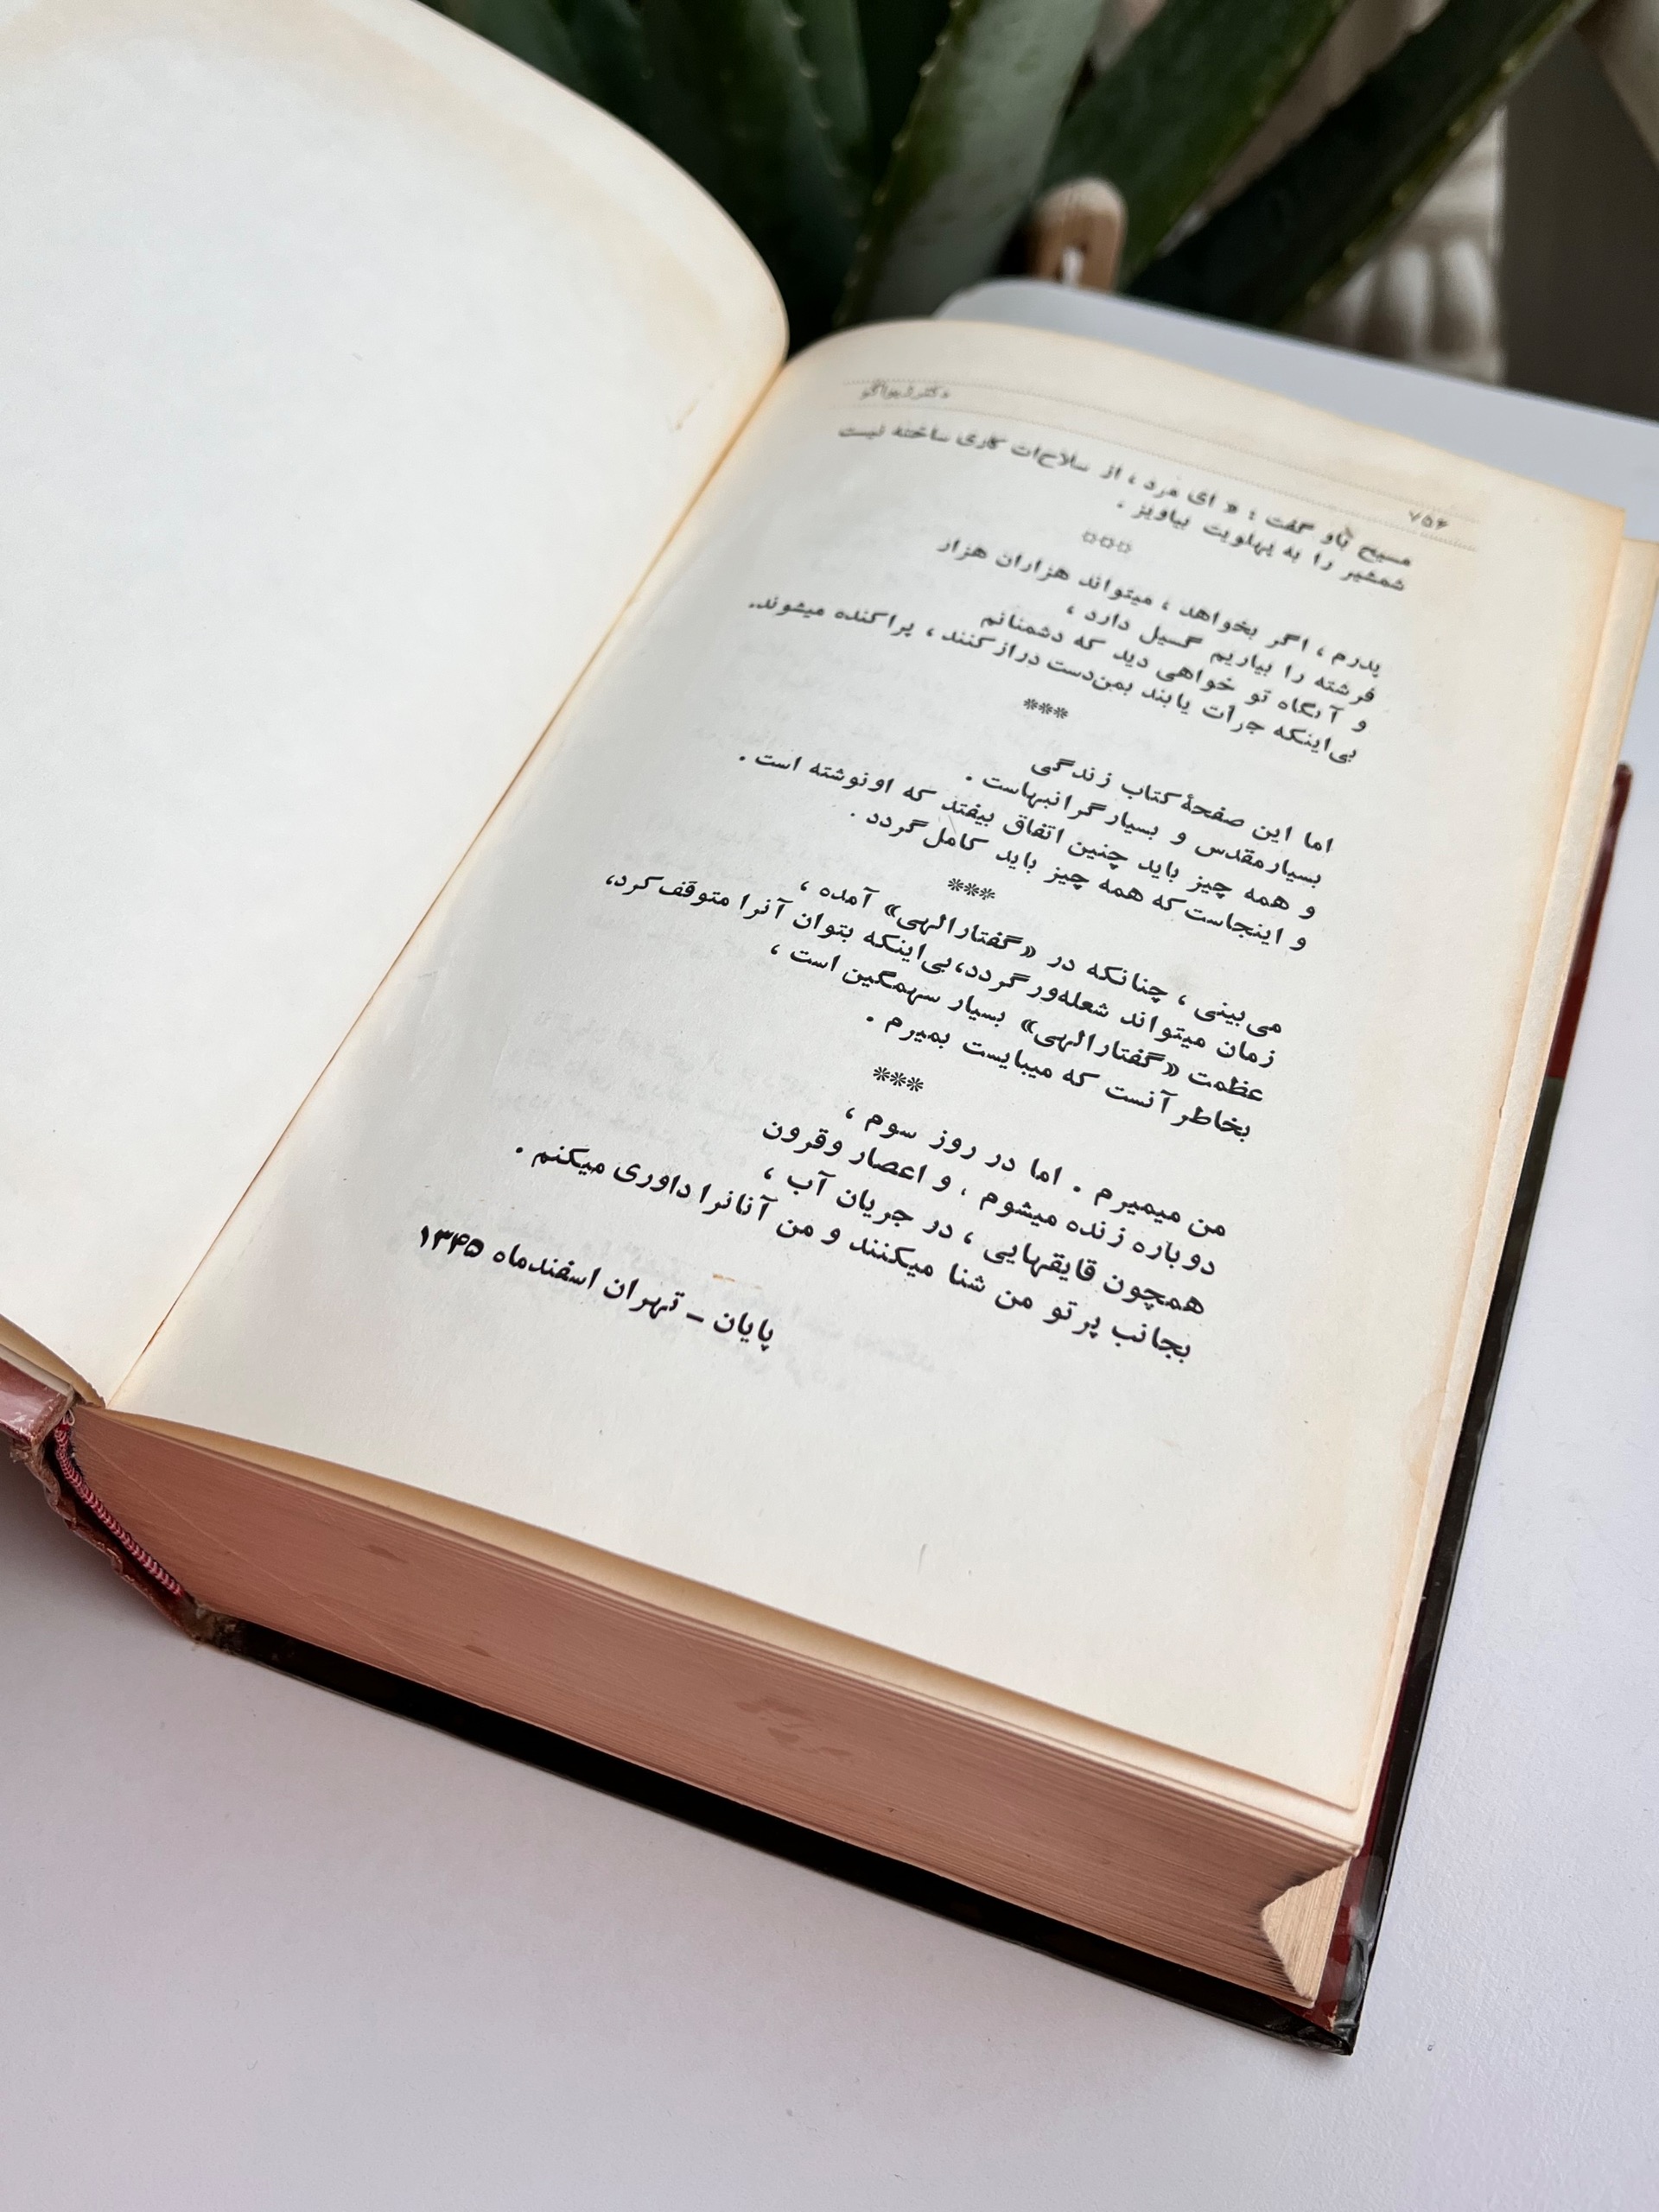 ۷۵۴ دکتر ژیواگو
مسیح باو گفت : « ای مرد ، از سلاح‌ات کاری ساخته نیست
شمشیر را به پهلویت بیاویز .
***
پدرم ، اگر بخواهد ، میتواند هزاران هزار
فرشته را بیاریم گسیل دارد ،
و آنگاه تو خواهی دید که دشمنانم
بی‌اینکه جرأت یابند بمن‌دست درازکنند ، پراکنده میشوند.
***
اما این صفحهٔ کتاب زندگی
بسیارمقدس و بسیارگرانبهاست .
و همه چیز باید چنین اتفاق بیفتد که اونوشته است .
و اینجاست که همه چیز باید کامل‌گردد .
***
می‌بینی ، چنانکه در «گفتارالهی» آمده ،
زمان میتواند شعله‌ورگردد،بی‌اینکه بتوان آنرا متوقف‌کرد،
عظمت «گفتارالهی» بسیار سهمگین است ،
بخاطرآنست که میبایست بمیرم .
***
من میمیرم . اما در روز سوم ،
دوباره زنده میشوم ، و اعصار وقرون
همچون قایقهایی ، در جریان آب ،
بجانب پرتو من شنا میکنند و من آنانرا داوری میکنم .
پایان ـ تهران اسفندماه ۱۳۴۵